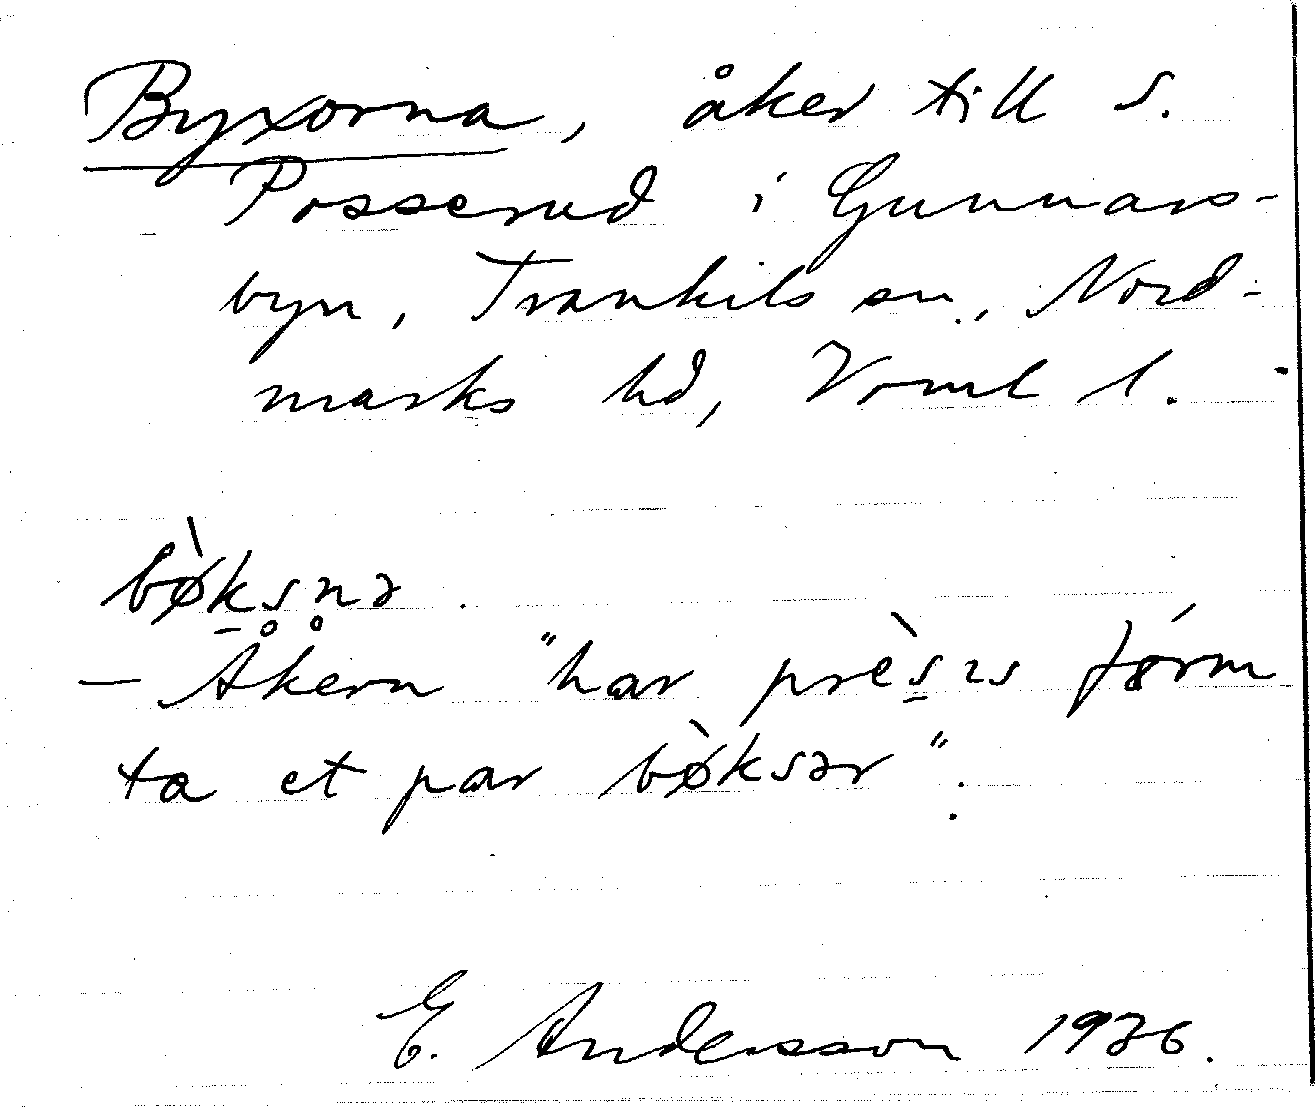 Byxorna, åker till S.
Posserud i Gunnars-
byn, Trankils sn, Nord-
marks hd, Vrml l.
bø̀ks̥n̥ə.
— Åkern "har près ɪs fǿrm
ta et par bø̀ksər".
E. Andersson 1936.